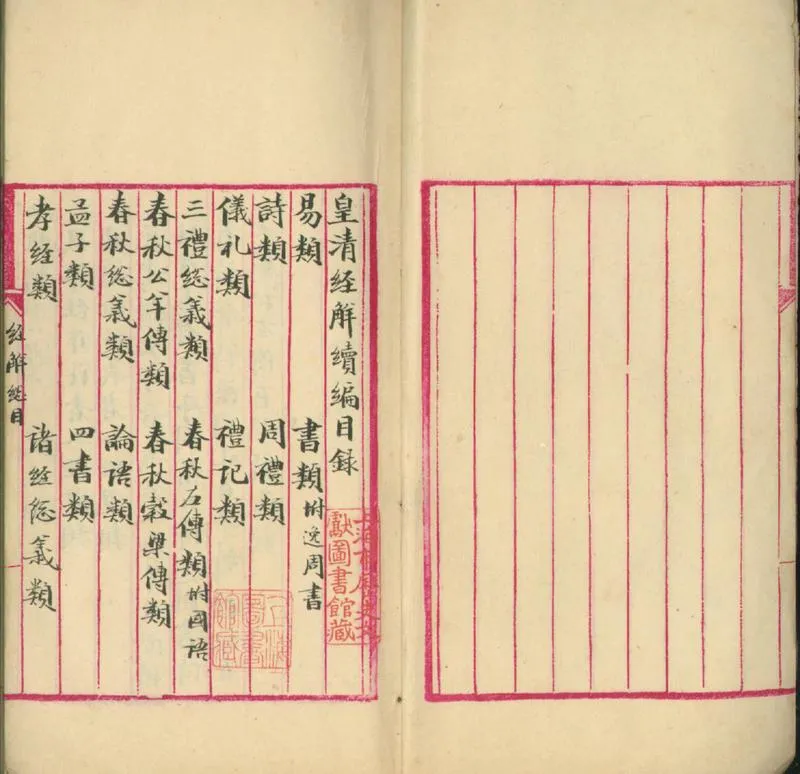 皇清经解續编目録
易類　書類附逸周書
詩類　周禮類
儀礼類　禮记類
三禮緫義類　春秋左傳類附国语
春秋公羊傳類　春秋穀梁傳類
春秋緫義類　論语類
孟子類　四書類
孝经類　诸经緫義類
经解緫目
獻圖書館藏
上海圖書館藏